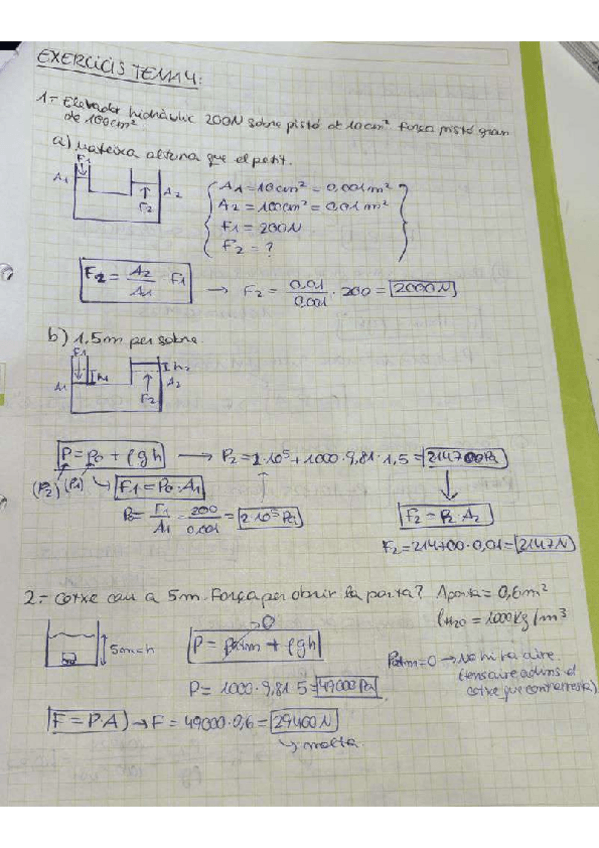 EXERCICIS TEMA 4:
1- Elevador hidràulic 200N sobre pistó de 10cm² força pistó gran
de 100cm²
a) Mateixa altura que el petit.
F1
A1
A2
F2
A1 = 10cm² = 0,001m²
A2 = 100cm² = 0,01m²
F1 = 200N
F2 = ?
F2 = A2/A1 · F1 → F2 = 0,01/0,001 · 200 = 2000N
b) 1,5m per sobre
F1
A1
h1
h2
F2
A2
P = P0 + ρgh → P2 = 2·10⁵ + 1000·9,81·1,5 = 214700Pa
(P2) (P1) → F1 = P0·A1
P0 = F1/A1 = 200/0,001 = 2·10⁵Pa
F2 = P2·A2
F2 = 214700·0,01 = 2147N
2- Cotxe cau a 5m. Força per obrir la porta? Aporta = 0,6m²
ρH2O = 1000kg/m³
5m = h
0
P = Patm + ρgh
Patm = 0 → No hi ha aire
(tens aire adins el
cotxe que contrarresta)
P = 1000·9,81·5 = 49000Pa
F = P·A → F = 49000·0,6 = 29400N
↳ molta